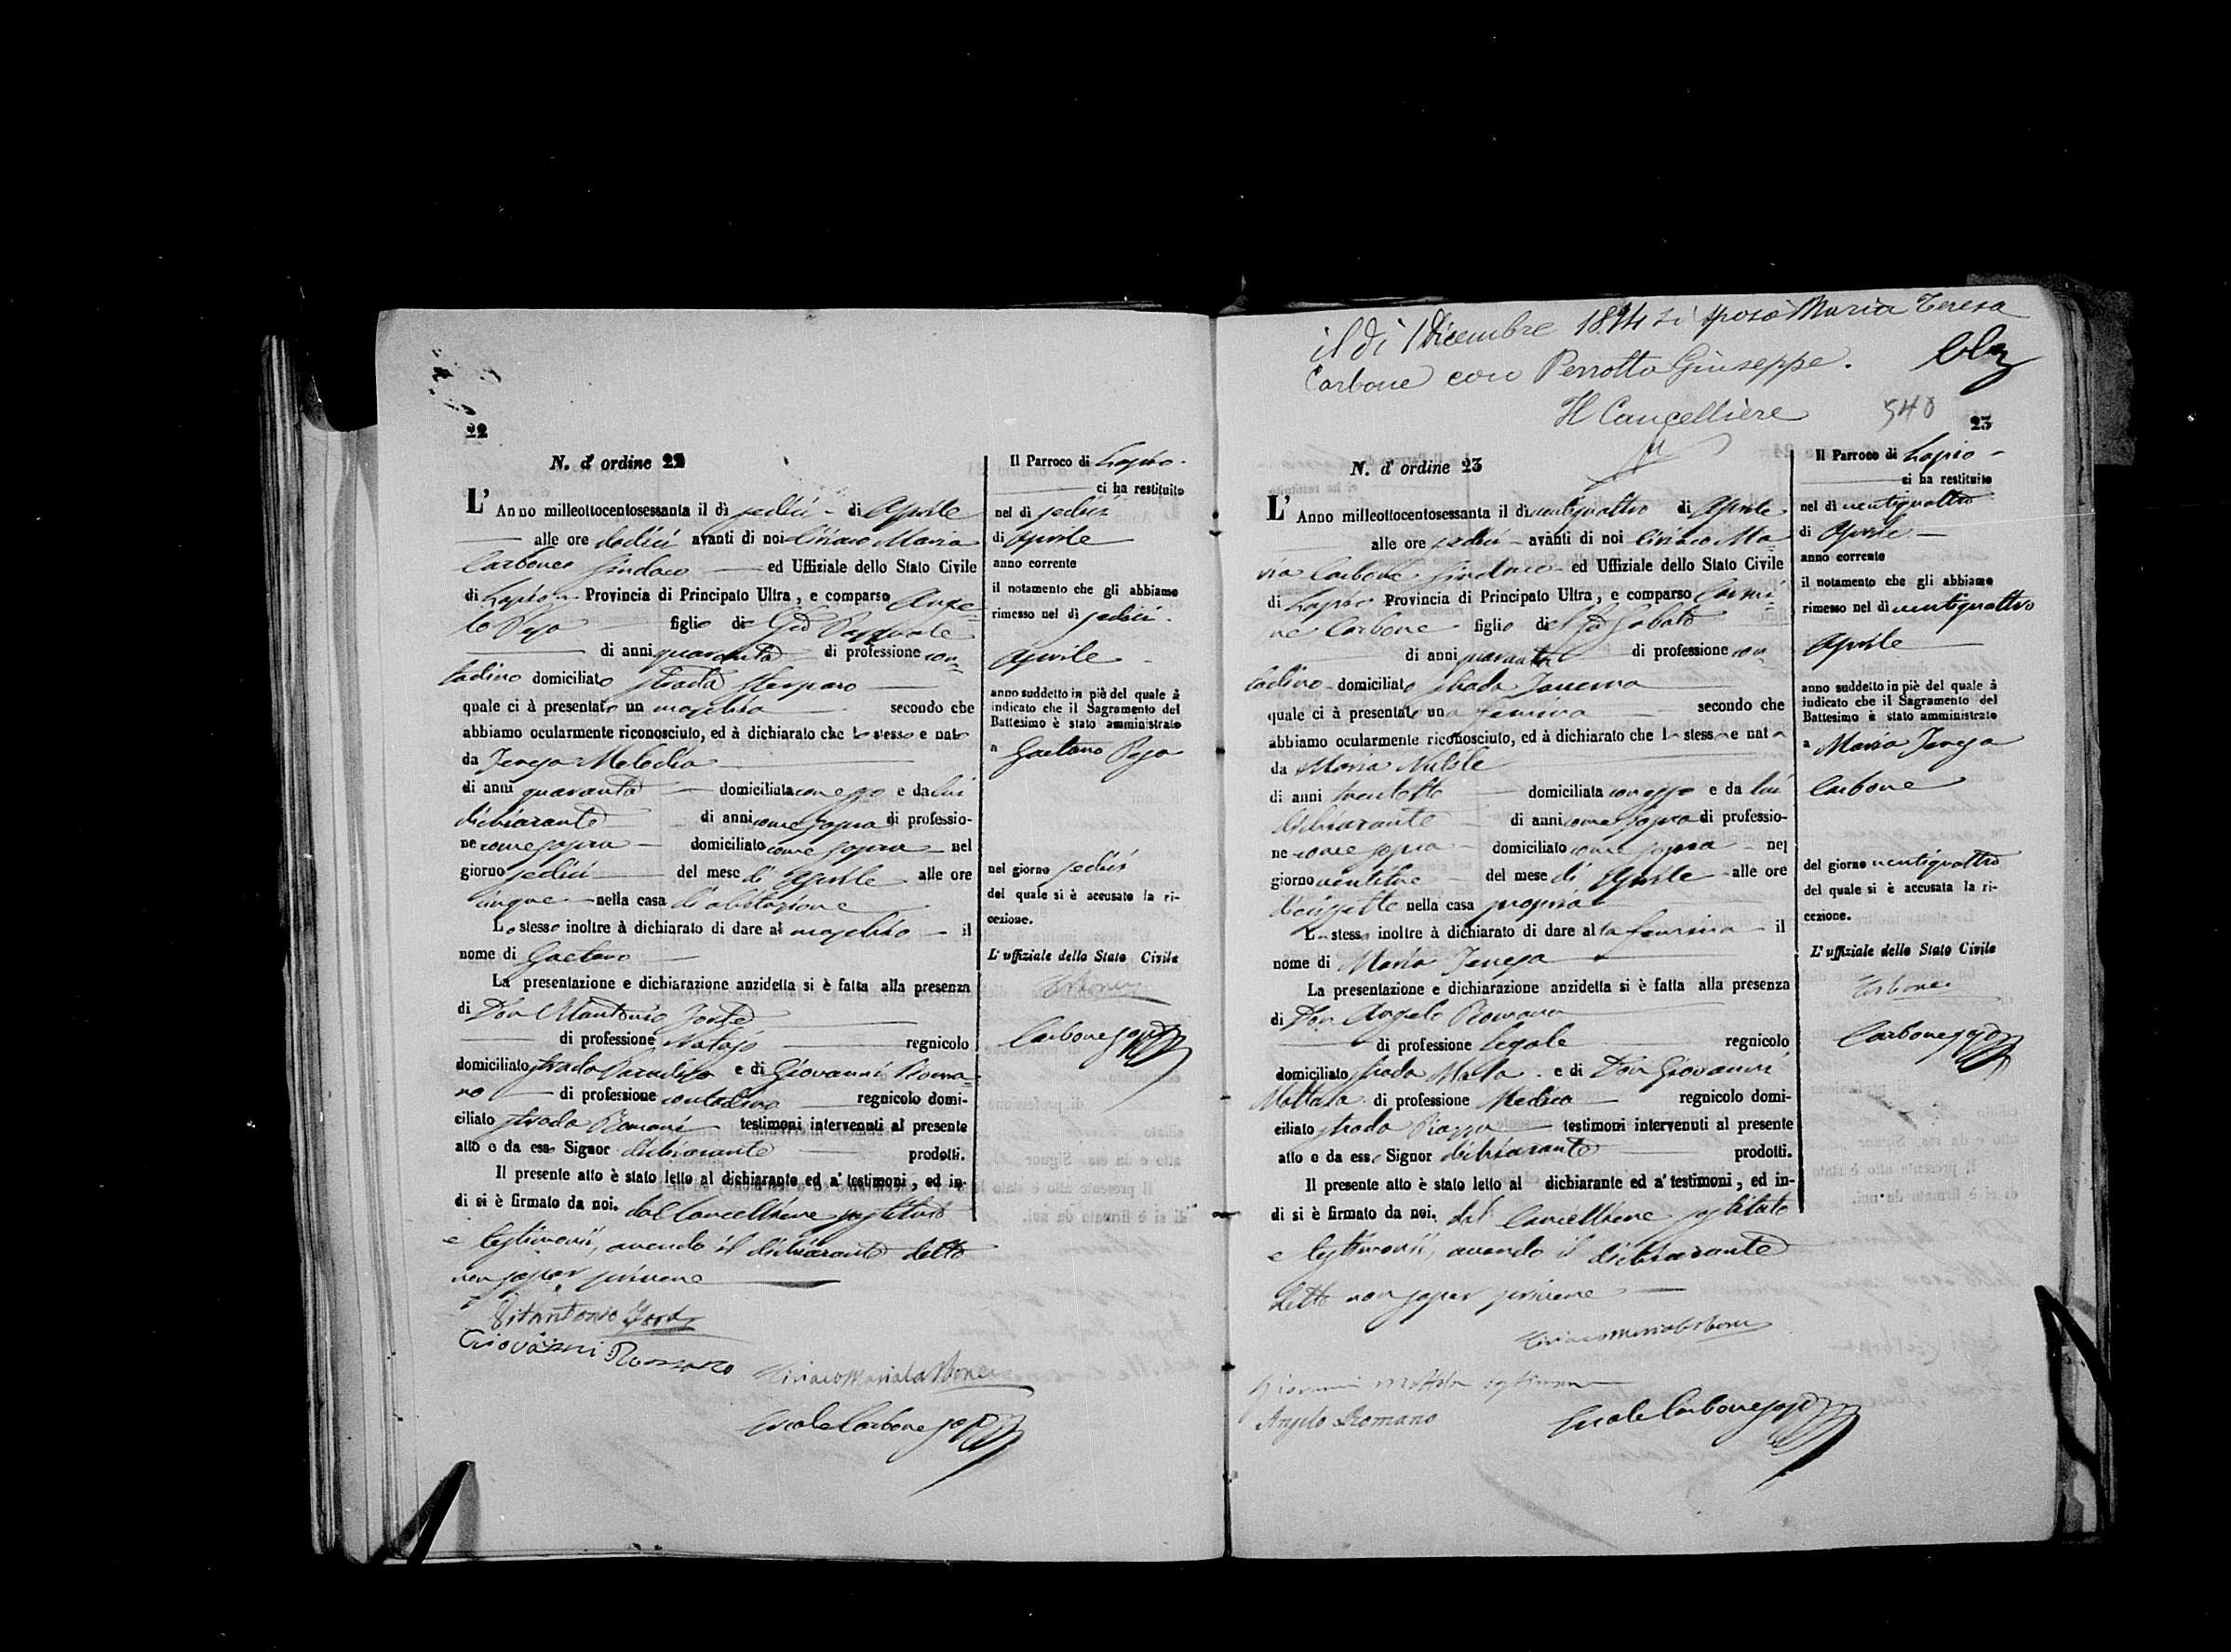 22
N. d' ordine 22
L' Anno milleottocentosessanta il dì sedici di Aprile
alle ore dodici avanti di noi Ciriaco Maria
Carbone Sindaco ed Uffiziale dello Stato Civile
di Lapio Provincia di Principato Ultra, e comparso Ange=
lo figlio di Pasquale
di anni quaranta di professione con=
tadino domiciliato strada
quale ci à presentato un maschio secondo che
abbiamo ocularmente riconosciuto, ed à dichiarato che lo stesso e nato
da Teresa Melodia
di anni quaranta domiciliata con esso e da lui
dichiarante di anni come sopra di professio-
ne come sopra domiciliato come sopra nel
giorno sedici del mese di Aprile alle ore
cinque nella casa di abitazione
Lo stesso inoltre à dichiarato di dare al maschio il
nome di Gaetano
La presentazione e dichiarazione anzidetta si è fatta alla presenza
di Don
di professione regnicolo
domiciliato strada e di Giovanni Roma=
no di professione contadino regnicolo domi-
ciliato strada Romani testimoni intervenuti al presente
atto e da esso Signor dichiarante prodotti.
Il presente atto è stato letto al dichiarante ed a' testimoni, ed in-
di si è firmato da noi. dal Cancelliere sostituto
e testimonii, avendo il dichiarante detto
non saper scrivere
Giovanni Romano
Ciriaco Maria Carbone
Carbone
Il Parroco di Lapio
ci ha restituito
nel dì sedici
di Aprile
anno corrente
il notamento che gli abbiamo
rimesso nel dì sedici
Aprile
anno suddetto in piè del quale à
indicato che il Sagramento del
Battesimo è stato amministrato
a Gaetano
nel giorno sedici
del quale si è accusato la ri-
cezione.
L' uffiziale dello Stato Civile
Carbone
Carbone
il dì 1 Dicembre si sposò Maria Teresa
Carbone con Perrotta Giuseppe.
Il Cancelliere
540
23
N. d' ordine 23
L' Anno milleottocentosessanta il dì ventiquattro di Aprile
alle ore sedici avanti di noi Ciriaco Ma=
ria Carbone Sindaco ed Uffiziale dello Stato Civile
di Lapio Provincia di Principato Ultra, e comparso Carmi=
ne Carbone figlio di Sabato
di anni quaranta di professione con=
tadino domiciliato strada Taverna
quale ci à presentato una femina secondo che
abbiamo ocularmente riconosciuto, ed à dichiarato che la stessa e nata
da Maria
di anni trentotto domiciliata con esso e da lui
dichiarante di anni come sopra di professio-
ne come sopra domiciliato come sopra nel
giorno ventitre del mese di Aprile alle ore
diciassette nella casa propria
Lo stesso inoltre à dichiarato di dare alla femina il
nome di Maria Teresa
La presentazione e dichiarazione anzidetta si è fatta alla presenza
di Don Angelo Romano
di professione legale regnicolo
domiciliato strada e di Don Giovanni
Mottola di professione Medico regnicolo domi-
ciliato strada Piazza testimoni intervenuti al presente
atto e da esso Signor dichiarante prodotti.
Il presente atto è stato letto al dichiarante ed a' testimoni, ed in-
di si è firmato da noi. dal Cancelliere sostituto
e testimonii, avendo il dichiarante
detto non saper scrivere
Ciriaco Maria Carbone
Giovanni Mottola testimone
Angelo Romano
Carbone
Il Parroco di Lapio
ci ha restituito
nel dì ventiquattro
di Aprile
anno corrente
il notamento che gli abbiamo
rimesso nel dì ventiquattro
Aprile
anno suddetto in piè del quale à
indicato che il Sagramento del
Battesimo è stato amministrato
a Maria Teresa
Carbone
del giorno ventiquattro
del quale si è accusata la ri-
cezione.
L' uffiziale dello Stato Civile
Carbone
Carbone